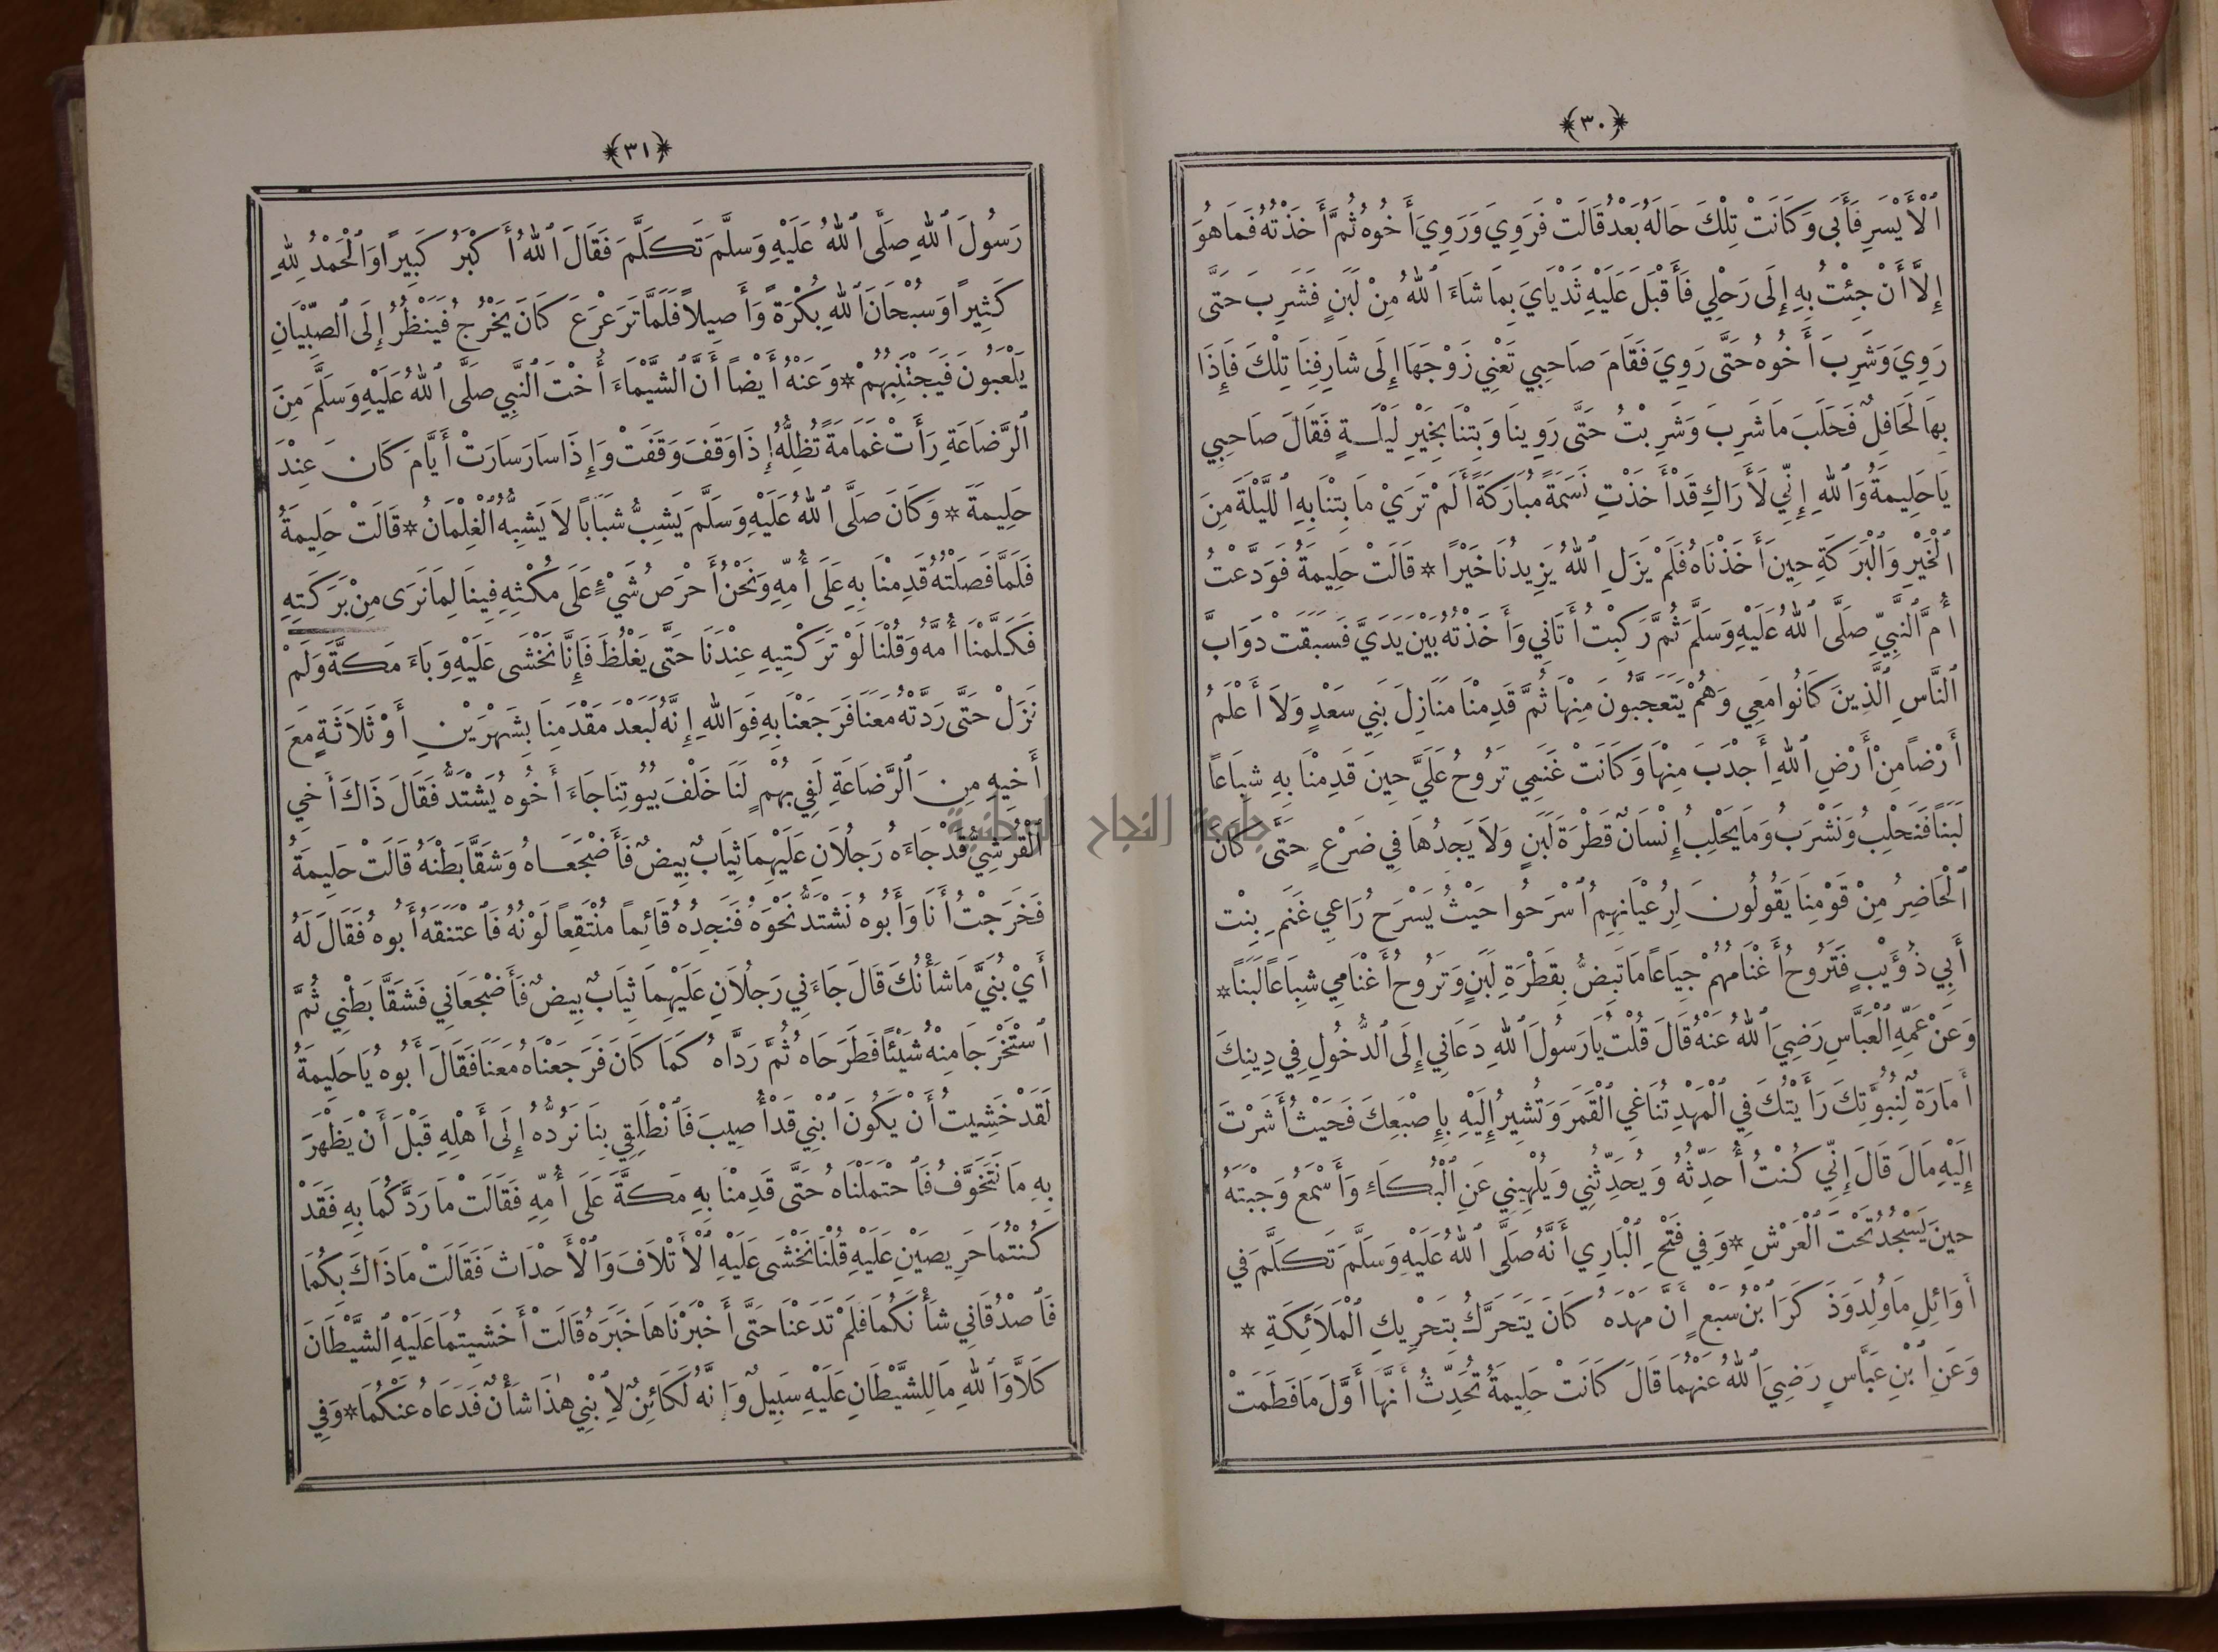 ﴿٣٠﴾
ٱلْأَيْسَرِ فَأَبَى وَكَانَتْ تِلْكَ حَالَهُ بَعْدُ قَالَتْ فَرَوِيَ وَرَوِيَ أَخُوهُ ثُمَّ أَخَذْتُهُ فَمَا هُوَ
إِلاَّ أَنْ جِئْتُ بِهِ إِلَى رَحْلِي فَأَقْبَلَ عَلَيْهِ ثَدْيَايَ بِمَا شَاءَ ٱللهُ مِنْ لَبَنٍ فَشَرِبَ حَتَّى
رَوِيَ وَشَرِبَ أَخُوهُ حَتَّى رَوِيَ فَقَامَ صَاحِبِي تَعْنِي زَوْجَهَا إِلَى شَارِفِنَا تِلْكَ فَإِذَا
بِهَا لَحَافِلٌ فَحَلَبَ مَا شَرِبَ وَشَرِبْتُ حَتَّى رَوِينَا وَبِتْنَا بِخَيْرِ لَيْلَةٍ فَقَالَ صَاحِبِي
يَا حَلِيمَةُ وَٱللهِ إِنِّي لَأَرَاكِ قَدْ أَخَذْتِ نَسَمَةً مُبَارَكَةً أَلَمْ تَرَيْ مَا بِتْنَا بِهِ ٱللَّيْلَةَ مِنَ
ٱلْخَيْرِ وَٱلْبَرَكَةِ حِينَ أَخَذْنَاهُ فَلَمْ يَزَلِ ٱللهُ يَزِيدُنَا خَيْرًا * قَالَتْ حَلِيمَةُ فَوَدَّعْتُ
أُمَّ ٱلنَّبِيِّ صَلَّى ٱللهُ عَلَيْهِ وَسَلَّمَ ثُمَّ رَكِبْتُ أَتَانِي وَأَخَذْتُهُ بَيْنَ يَدَيَّ فَسَبَقَتْ دَوَابَّ
ٱلنَّاسِ ٱلَّذِينَ كَانُوا مَعِي وَهُمْ يَتَعَجَّبُونَ مِنْهَا ثُمَّ قَدِمْنَا مَنَازِلَ بَنِي سَعْدٍ وَلَا أَعْلَمُ
أَرْضًا مِنْ أَرْضِ ٱللهِ أَجْدَبَ مِنْهَا وَكَانَتْ غَنَمِي تَرُوحُ عَلَيَّ حِينَ قَدِمْنَا بِهِ شِبَاعًا
لَبَنًا فَنَحْلِبُ وَنَشْرَبُ وَمَا يَحْلِبُ إِنْسَانٌ قَطْرَةَ لَبَنٍ وَلَا يَجِدُهَا فِي ضَرْعٍ حَتَّى كَانَ
ٱلْحَاضِرُ مِنْ قَوْمِنَا يَقُولُونَ لِرُعْيَانِهِمُ ٱسْرَحُوا حَيْثُ يَسْرَحُ رَاعِي غَنَمِ بِنْتِ
أَبِي ذُؤَيْبٍ فَتَرُوحُ أَغْنَامُهُمْ جِيَاعًا مَا تَبِضُّ بِقَطْرَةِ لَبَنٍ وَتَرُوحُ أَغْنَامِي شِبَاعًا لَبَنًا *
وَعَنْ عَمِّهِ ٱلْعَبَّاسِ رَضِيَ ٱللهُ عَنْهُ قَالَ قُلْتُ يَا رَسُولَ ٱللهِ دَعَانِي إِلَى ٱلدُّخُولِ فِي دِينِكَ
أَمَارَةٌ لِنُبُوَّتِكَ رَأَيْتُكَ فِي ٱلْمَهْدِ تُنَاغِي ٱلْقَمَرَ وَتُشِيرُ إِلَيْهِ بِإِصْبَعِكَ فَحَيْثُ أَشَرْتَ
إِلَيْهِ مَالَ قَالَ إِنِّي كُنْتُ أُحَدِّثُهُ وَيُحَدِّثُنِي وَيُلْهِينِي عَنِ ٱلْبُكَاءِ وَأَسْمَعُ وَجْبَتَهُ
حِينَ يَسْجُدُ تَحْتَ ٱلْعَرْشِ * وَفِي فَتْحِ ٱلْبَارِي أَنَّهُ صَلَّى ٱللهُ عَلَيْهِ وَسَلَّمَ تَكَلَّمَ فِي
أَوَائِلِ مَا وُلِدَ وَذَكَرَ ٱبْنُ سَبْعٍ أَنَّ مَهْدَهُ كَانَ يَتَحَرَّكُ بِتَحْرِيكِ ٱلْمَلَائِكَةِ *
وَعَنِ ٱبْنِ عَبَّاسٍ رَضِيَ ٱللهُ عَنْهُمَا قَالَ كَانَتْ حَلِيمَةُ تُحَدِّثُ أَنَّهَا أَوَّلَ مَا فَطَمَتْ
﴿٣١﴾
رَسُولَ ٱللهِ صَلَّى ٱللهُ عَلَيْهِ وَسَلَّمَ تَكَلَّمَ فَقَالَ ٱللهُ أَكْبَرُ كَبِيرًا وَٱلْحَمْدُ لِلهِ
كَثِيرًا وَسُبْحَانَ ٱللهِ بُكْرَةً وَأَصِيلاً فَلَمَّا تَرَعْرَعَ كَانَ يَخْرُجُ فَيَنْظُرُ إِلَى ٱلصِّبْيَانِ
يَلْعَبُونَ فَيَجْتَنِبُهُمْ * وَعَنْهُ أَيْضًا أَنَّ ٱلشَّيْمَاءَ أُخْتَ ٱلنَّبِي صَلَّى ٱللهُ عَلَيْهِ وَسَلَّمَ مِنَ
ٱلرَّضَاعَةِ رَأَتْ غَمَامَةً تُظِلُّهُ إِذَا وَقَفَ وَقَفَتْ وَإِذَا سَارَ سَارَتْ أَيَّامَ كَانَ عِنْدَ
حَلِيمَةَ * وَكَانَ صَلَّى ٱللهُ عَلَيْهِ وَسَلَّمَ يَشِبُّ شَبَابًا لَا يَشِبُّهُ ٱلْغِلْمَانُ * قَالَتْ حَلِيمَةُ
فَلَمَّا فَصَلَتْهُ قَدِمْنَا بِهِ عَلَى أُمِّهِ وَنَحْنُ أَحْرَصُ شَيْءٍ عَلَى مُكْثِهِ فِينَا لِمَا نَرَى مِنْ بَرَكَتِهِ
فَكَلَّمْنَا أُمَّهُ وَقُلْنَا لَوْ تَرَكْتِيهِ عِنْدَنَا حَتَّى يَغْلُظَ فَإِنَّا نَخْشَى عَلَيْهِ وَبَاءَ مَكَّةَ وَلَمْ
نَزَلْ حَتَّى رَدَّتْهُ مَعَنَا فَرَجَعْنَا بِهِ فَوَاللهِ إِنَّهُ لَبَعْدَ مَقْدَمِنَا بِشَهْرَيْنِ أَوْ ثَلَاثَةٍ مَعَ
أَخِيهِ مِنَ ٱلرَّضَاعَةِ لَفِي بُهْمٍ لَنَا خَلْفَ بُيُوتِنَا جَاءَ أَخُوهُ يَشْتَدُّ فَقَالَ ذَاكَ أَخِي
ٱلْقُرَشِيُّ قَدْ جَاءَهُ رَجُلَانِ عَلَيْهِمَا ثِيَابٌ بِيضٌ فَأَضْجَعَاهُ وَشَقَّا بَطْنَهُ قَالَتْ حَلِيمَةُ
فَخَرَجْتُ أَنَا وَأَبُوهُ نَشْتَدُّ نَحْوَهُ فَنَجِدُهُ قَائِمًا مُنْتَقِعًا لَوْنُهُ فَٱعْتَنَقَهُ أَبُوهُ فَقَالَ لَهُ
أَيْ بُنَيَّ مَا شَأْنُكَ قَالَ جَاءَنِي رَجُلَانِ عَلَيْهِمَا ثِيَابٌ بِيضٌ فَأَضْجَعَانِي فَشَقَّا بَطْنِي ثُمَّ
ٱسْتَخْرَجَا مِنْهُ شَيْئًا فَطَرَحَاهُ ثُمَّ رَدَّاهُ كَمَا كَانَ فَرَجَعْنَاهُ مَعَنَا فَقَالَ أَبُوهُ يَا حَلِيمَةُ
لَقَدْ خَشِيتُ أَنْ يَكُونَ ٱبْنِي قَدْ أُصِيبَ فَٱنْطَلِقِي بِنَا نَرُدُّهُ إِلَى أَهْلِهِ قَبْلَ أَنْ يَظْهَرَ
بِهِ مَا نَتَخَوَّفُ فَٱحْتَمَلْنَاهُ حَتَّى قَدِمْنَا بِهِ مَكَّةَ عَلَى أُمِّهِ فَقَالَتْ مَا رَدَّكُمَا بِهِ فَقَدْ
كُنْتُمَا حَرِيصَيْنِ عَلَيْهِ قُلْنَا نَخْشَى عَلَيْهِ ٱلْأَتْلَافَ وَٱلْأَحْدَاثَ فَقَالَتْ مَا ذَاكَ بِكُمَا
فَٱصْدُقَانِي شَأْنَكُمَا فَلَمْ تَدَعْنَا حَتَّى أَخْبَرْنَاهَا خَبَرَهُ قَالَتْ أَخَشِيتُمَا عَلَيْهِ ٱلشَّيْطَانَ
كَلاَّ وَٱللهِ مَا لِلشَّيْطَانِ عَلَيْهِ سَبِيلٌ وَإِنَّهُ لَكَائِنٌ لِٱبْنِي هٰذَا شَأْنٌ فَدَعَاهُ عَنْكُمَا * وَفِي
جامعة النجاح الوطنية